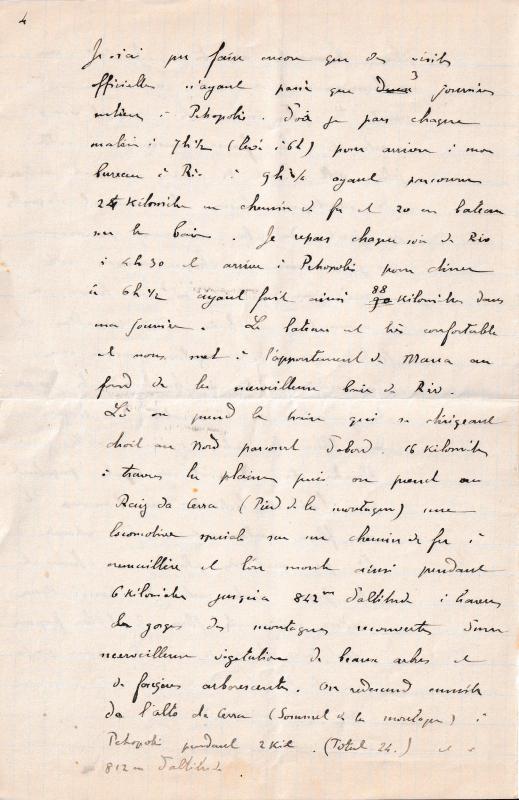 4
Je n'ai pu faire encore que des visites
officielles n'ayant passé que 3 journées
entières à Petropolis. D'où je pars chaque
matin à 7h 1/2 (levé à 6h) pour arriver à mon
bureau à Rio à 9h 3/4 ayant parcouru
24 Kilomètres en chemin de fer et 20 en bateau
sur la baie. Je repars chaque soir de Rio
à 4h30 et arrive à Petropolis pour dîner
à 6h 1/2 ayant fait ainsi 88 Kilomètres dans
ma journée. Le bateau est très confortable
et nous met à l'appontement de Maua au
fond de la merveilleuse baie de Rio.
Là on prend le train qui se dirigeant
droit au Nord parcourt d'abord 16 Kilomètres
à travers la plaine puis on prend au
Raiz da Cerra (Pied de la montagne) une
locomotive spéciale sur un chemin de fer à
crémaillère et l'on monte ainsi pendant
6 Kilomètres jusqu'à 842m d'altitude à travers
les gorges des montagnes recouvertes d'une
merveilleuse végétation de beaux arbres et
de fougères arborescentes. On redescend ensuite
de l'alto da Cerra (Sommet de la montagne) à
Petropolis pendant 2 Kil. (Total 24.) et à
812m d'altitude